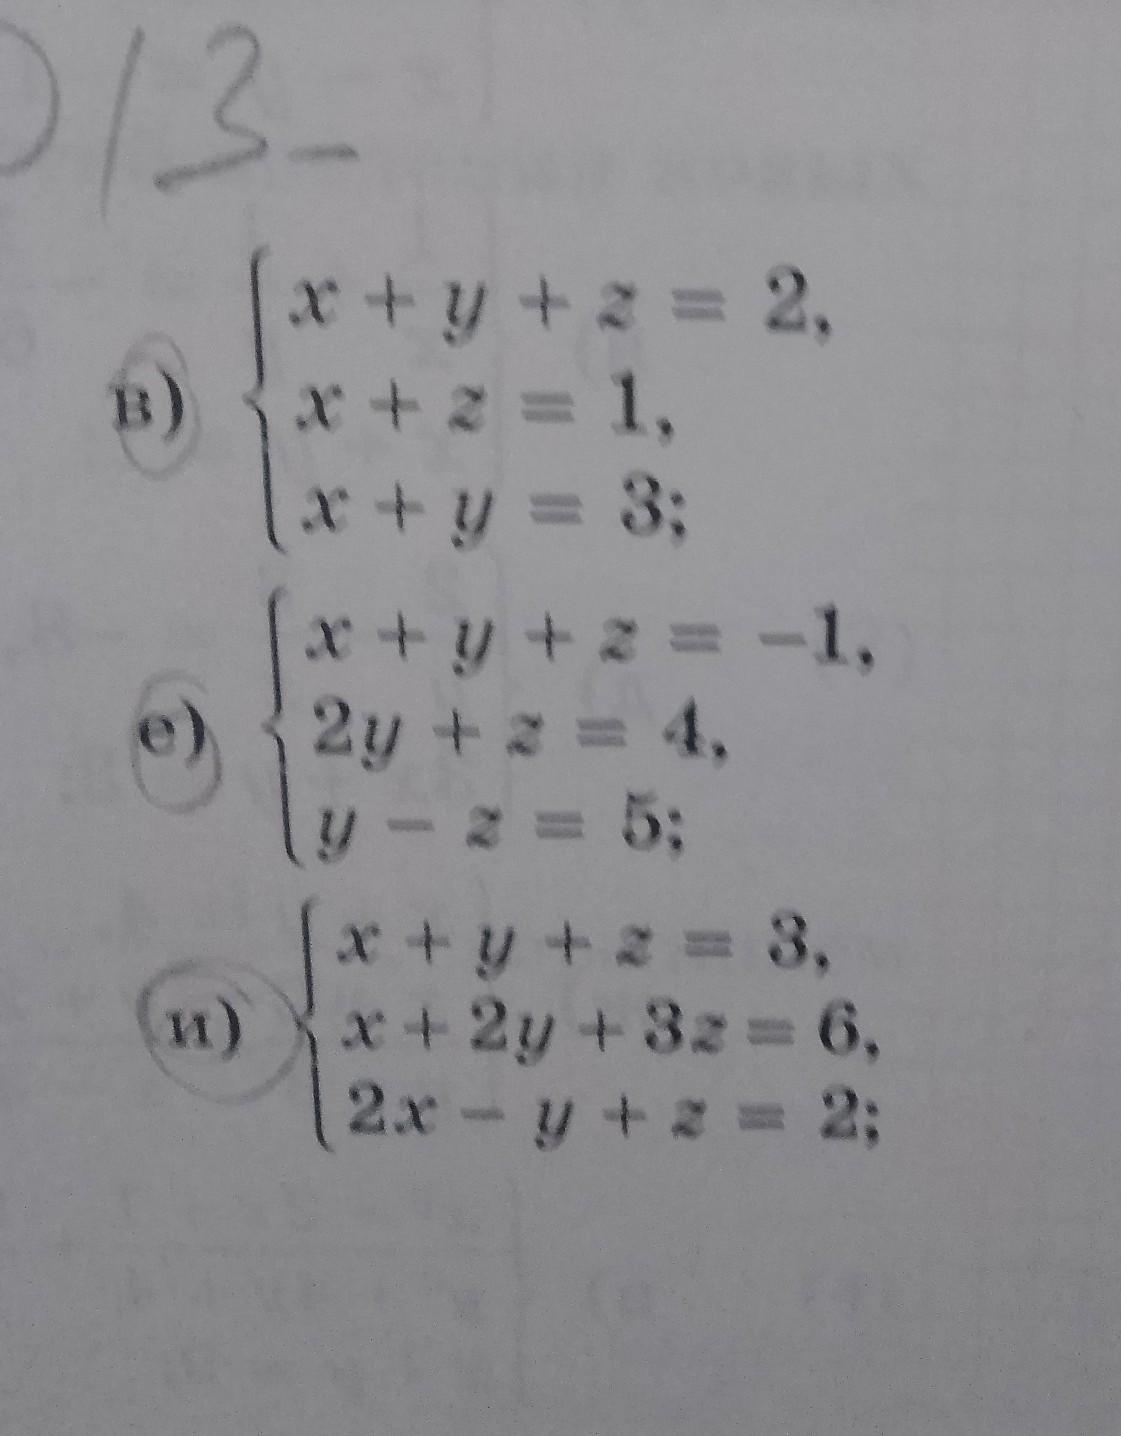 ) 13-
в) { x + y + z = 2,
x + z = 1,
x + y = 3;
е) { x + y + z = -1,
2y + z = 4,
y - z = 5;
и) { x + y + z = 3,
x + 2y + 3z = 6,
2x - y + z = 2;